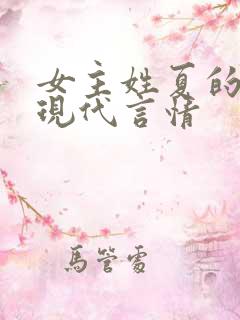 女主姓夏的
現代言情
馬管雷